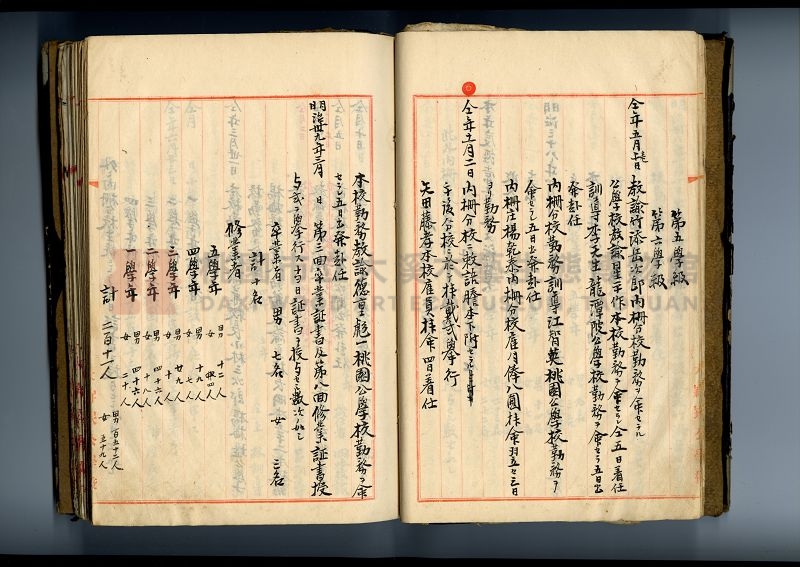 第五學級
第六學級
教諭竹添岳次郎内柵分校勤務ヲ命セラル
公學校教諭星平作本校勤務ヲ命セラル仝五日着任
訓導李天生龍潭陂公學校勤務ヲ命セラ五日出
發赴任
内柵分校勤務訓導江智英桃園公學校勤務ヲ
命セラレ五日出發赴任
内柵庄楊乾泰内柵分校雇月俸八圓拜命翌五
ヨリ勤務
仝年 月二日内柵分校ニ敎 語謄本下附セラレ
午後分校ニ於テ拜戴式擧行
矢田藤彦本校雇員拜命四日着任
本校勤務教諭德重彪一桃園公學校勤務ヲ命
セラレ五日出發赴任
明治卅九年三月 日 第三回卒業証書及第八回修業証書授
与式ヲ擧行ス 当日証書ヲ授与セシ數次ノ如シ
卒業者 男 七名 女 三名
計十名
修業者
五學年 男 十二人
四學年 男 十九人 女 七人
三學年 男 廿九人 女 八人
二學年 男 四十二人 女 十八人
一學年 男 四十六人 女 二十人
計 二百十一人 男 百五十二人 女 五十九人